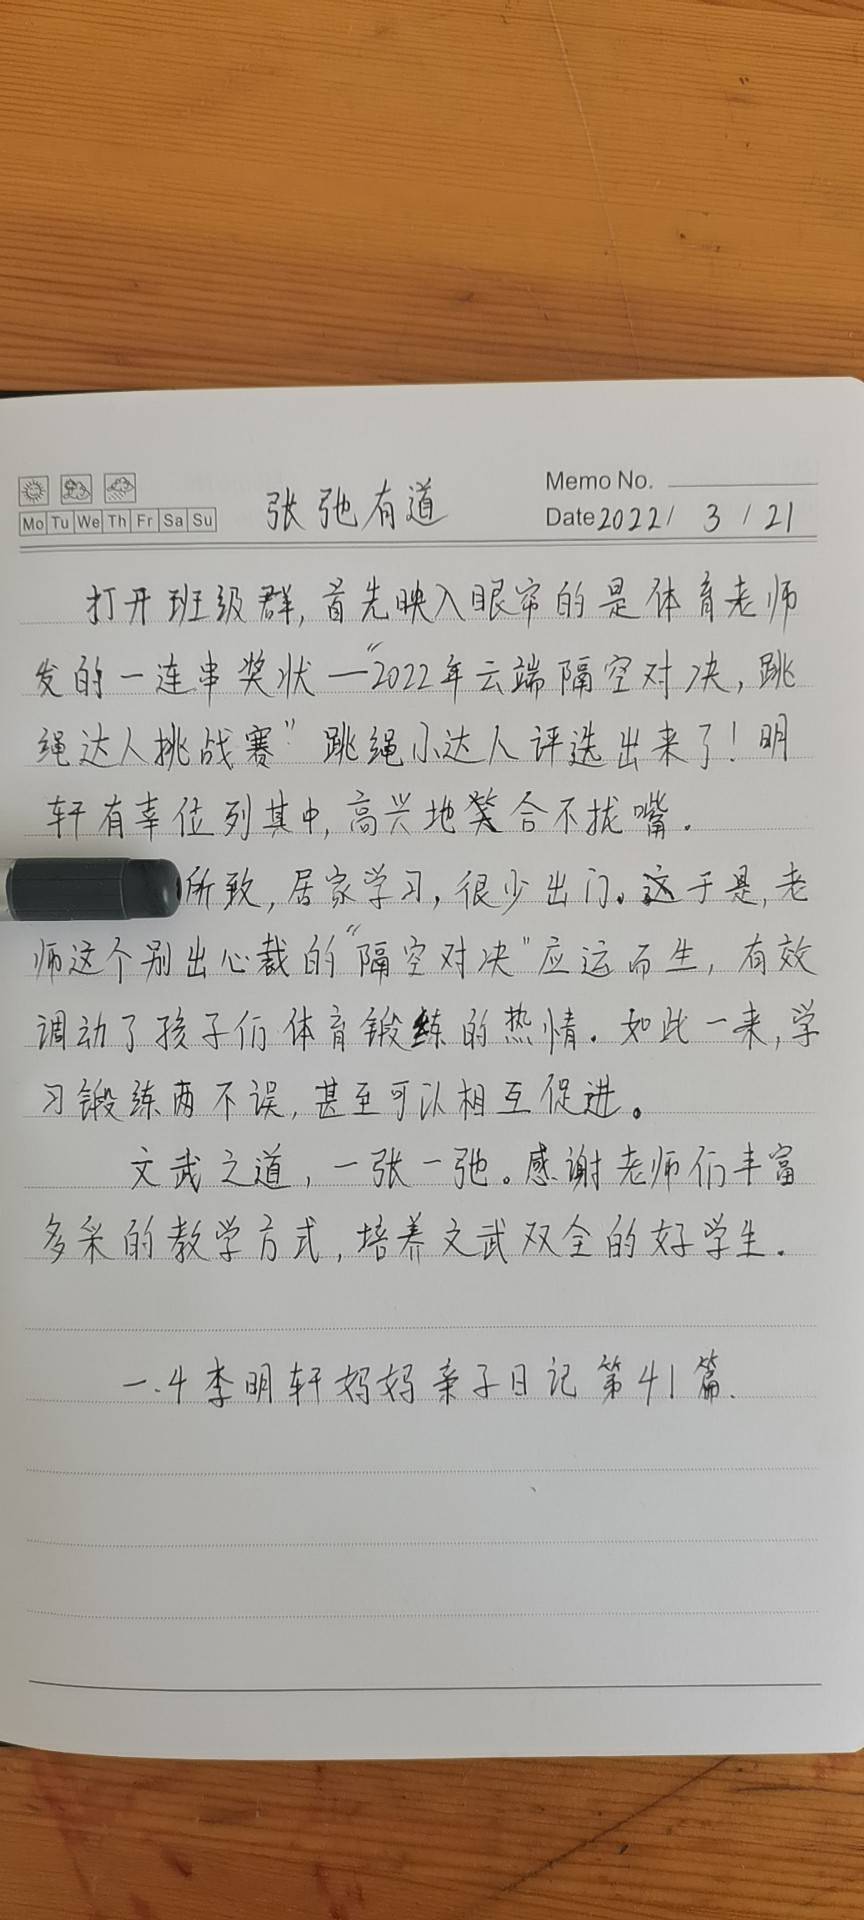 Mo Tu We Th Fr Sa Su
张弛有道
Memo No.
Date 2022/ 3 / 21
打开班级群,首先映入眼帘的是体育老师
发的一连串奖状一“2022年云端隔空对决,跳
绳达人挑战赛”跳绳小达人评选出来了!明
轩有幸位列其中,高兴地笑合不拢嘴.
所致,居家学习,很少出门。于是,老
师这个别出心裁的“隔空对决”应运而生,有效
调动了孩子们体育锻练的热情.如此一来,学
习锻练两不误,甚至可以相互促进。
文武之道,一张一弛。感谢老师们丰富
多采的教学方式,培养文武双全的好学生.
一.4李明轩妈妈亲子日记第41篇.